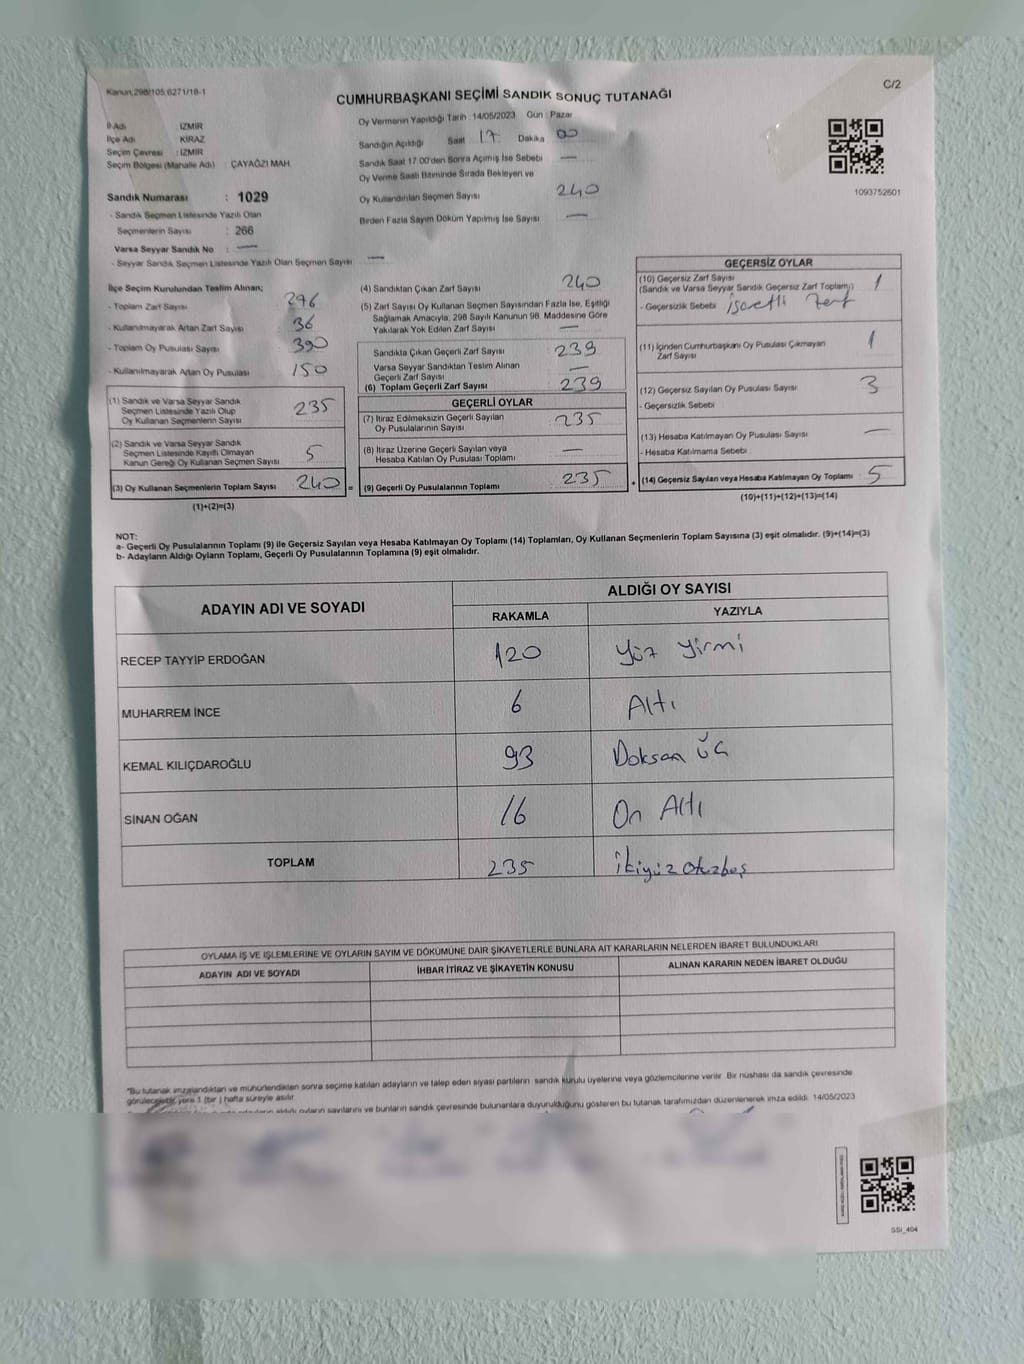 Kanun 298/105,6271/18-1
C/2
CUMHURBAŞKANI SEÇİMİ SANDIK SONUÇ TUTANAĞI
İl Adı : İZMİR
İlçe Adı : KİRAZ
Seçim Çevresi : İZMİR
Seçim Bölgesi (Mahalle Adı) ÇAYAĞZI MAH.
Sandık Numarası : 1029
- Sandık Seçmen Listesinde Yazılı Olan
Seçmenlerin Sayısı : 266
Varsa Seyyar Sandık No : —
- Seyyar Sandık Seçmen Listesinde Yazılı Olan Seçmen Sayısı —
Oy Vermenin Yapıldığı Tarih : 14/05/2023 Gün : Pazar
Sandığın Açıldığı Saat : 17 Dakika 00
Sandık Saat 17.00'den Sonra Açımış İse Sebebi —
Oy Verme Saati Bitiminde Sırada Bekleyen ve
Oy Kullandırılan Seçmen Sayısı 240
Birden Fazla Sayım Döküm Yapılmış İse Sayısı —
1093752601
İlçe Seçim Kurulundan Teslim Alınan;
- Toplam Zarf Sayısı 276
- Kullanılmayarak Artan Zarf Sayısı 36
- Toplam Oy Pusulası Sayısı 390
- Kullanılmayarak Artan Oy Pusulası 150
(1) Sandık ve Varsa Seyyar Sandık
Seçmen Listesinde Yazılı Olup
Oy Kullanan Seçmenlerin Sayısı 235
(2) Sandık ve Varsa Seyyar Sandık
Seçmen Listesinde Kayıtlı Olmayan
Kanun Gereği Oy Kullanan Seçmen Sayısı 5
(3) Oy Kullanan Seçmenlerin Toplam Sayısı 240 =
(1)+(2)=(3)
(4) Sandıktan Çıkan Zarf Sayısı 240
(5) Zarf Sayısı Oy Kullanan Seçmen Sayısından Fazla İse, Eşitliği
Sağlamak Amacıyla, 298 Sayılı Kanunun 98. Maddesine Göre
Yakılarak Yok Edilen Zarf Sayısı —
Sandıkta Çıkan Geçerli Zarf Sayısı 239
Varsa Seyyar Sandıktan Teslim Alınan
Geçerli Zarf Sayısı —
(6) Toplam Geçerli Zarf Sayısı 239
GEÇERLİ OYLAR
(7) İtiraz Edilmeksizin Geçerli Sayılan
Oy Pusulalarının Sayısı 235
(8) İtiraz Üzerine Geçerli Sayılan veya
Hesaba Katılan Oy Pusulası Toplamı —
(9) Geçerli Oy Pusulalarının Toplamı 235 +
GEÇERSİZ OYLAR
(10) Geçersiz Zarf Sayısı
(Sandık ve Varsa Seyyar Sandık Geçersiz Zarf Toplamı) 1
- Geçersizlik Sebebi işaretli zarf
(11) İçinden Cumhurbaşkanı Oy Pusulası Çıkmayan
Zarf Sayısı 1
(12) Geçersiz Sayılan Oy Pusulası Sayısı 3
- Geçersizlik Sebebi
(13) Hesaba Katılmayan Oy Pusulası Sayısı —
- Hesaba Katılmama Sebebi
(14) Geçersiz Sayılan veya Hesaba Katılmayan Oy Toplamı 5
(10)+(11)+(12)+(13)=(14)
NOT:
a- Geçerli Oy Pusulalarının Toplamı (9) ile Geçersiz Sayılan veya Hesaba Katılmayan Oy Toplamı (14) Toplamları, Oy Kullanan Seçmenlerin Toplam Sayısına (3) eşit olmalıdır. (9)+(14)=(3)
b- Adayların Aldığı Oyların Toplamı, Geçerli Oy Pusulalarının Toplamına (9) eşit olmalıdır.
ADAYIN ADI VE SOYADI ALDIĞI OY SAYISI
RAKAMLA YAZIYLA
RECEP TAYYİP ERDOĞAN 120 Yüz yirmi
MUHARREM İNCE 6 Altı
KEMAL KILIÇDAROĞLU 93 Doksan üç
SİNAN OĞAN 16 On Altı
TOPLAM 235 İkiyüz otuzbeş
OYLAMA İŞ VE İŞLEMLERİNE VE OYLARIN SAYIM VE DÖKÜMÜNE DAİR ŞİKAYETLERLE BUNLARA AİT KARARLARIN NELERDEN İBARET BULUNDUKLARI
ADAYIN ADI VE SOYADI İHBAR İTİRAZ VE ŞİKAYETİN KONUSU ALINAN KARARIN NEDEN İBARET OLDUĞU
"Bu tutanak imzalandıktan ve mühürlendikten sonra seçime katılan adayların ve talep eden siyasi partilerin sandık kurulu üyelerine veya gözlemcilerine verilir. Bir nüshası da sandık çevresinde
görülecebilir yere 1 (bir ) hafta süreyle asılır.
aldığı oyların sayılarını ve bunların sandık çevresinde bulunanlara duyurulduğunu gösteren bu tutanak tarafımızdan düzenlenerek imza edildi. 14/05/2023
GSİ_404